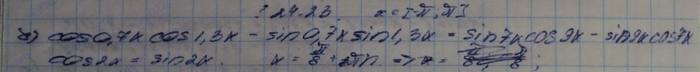 24.23. x = [-π, π]
a) cos 0,7x cos 1,3x - sin 0,7x sin 1,3x = sin 7x cos 9x - sin 9x cos 7x
cos 2x = sin 2x. x = π/8 + πn =>